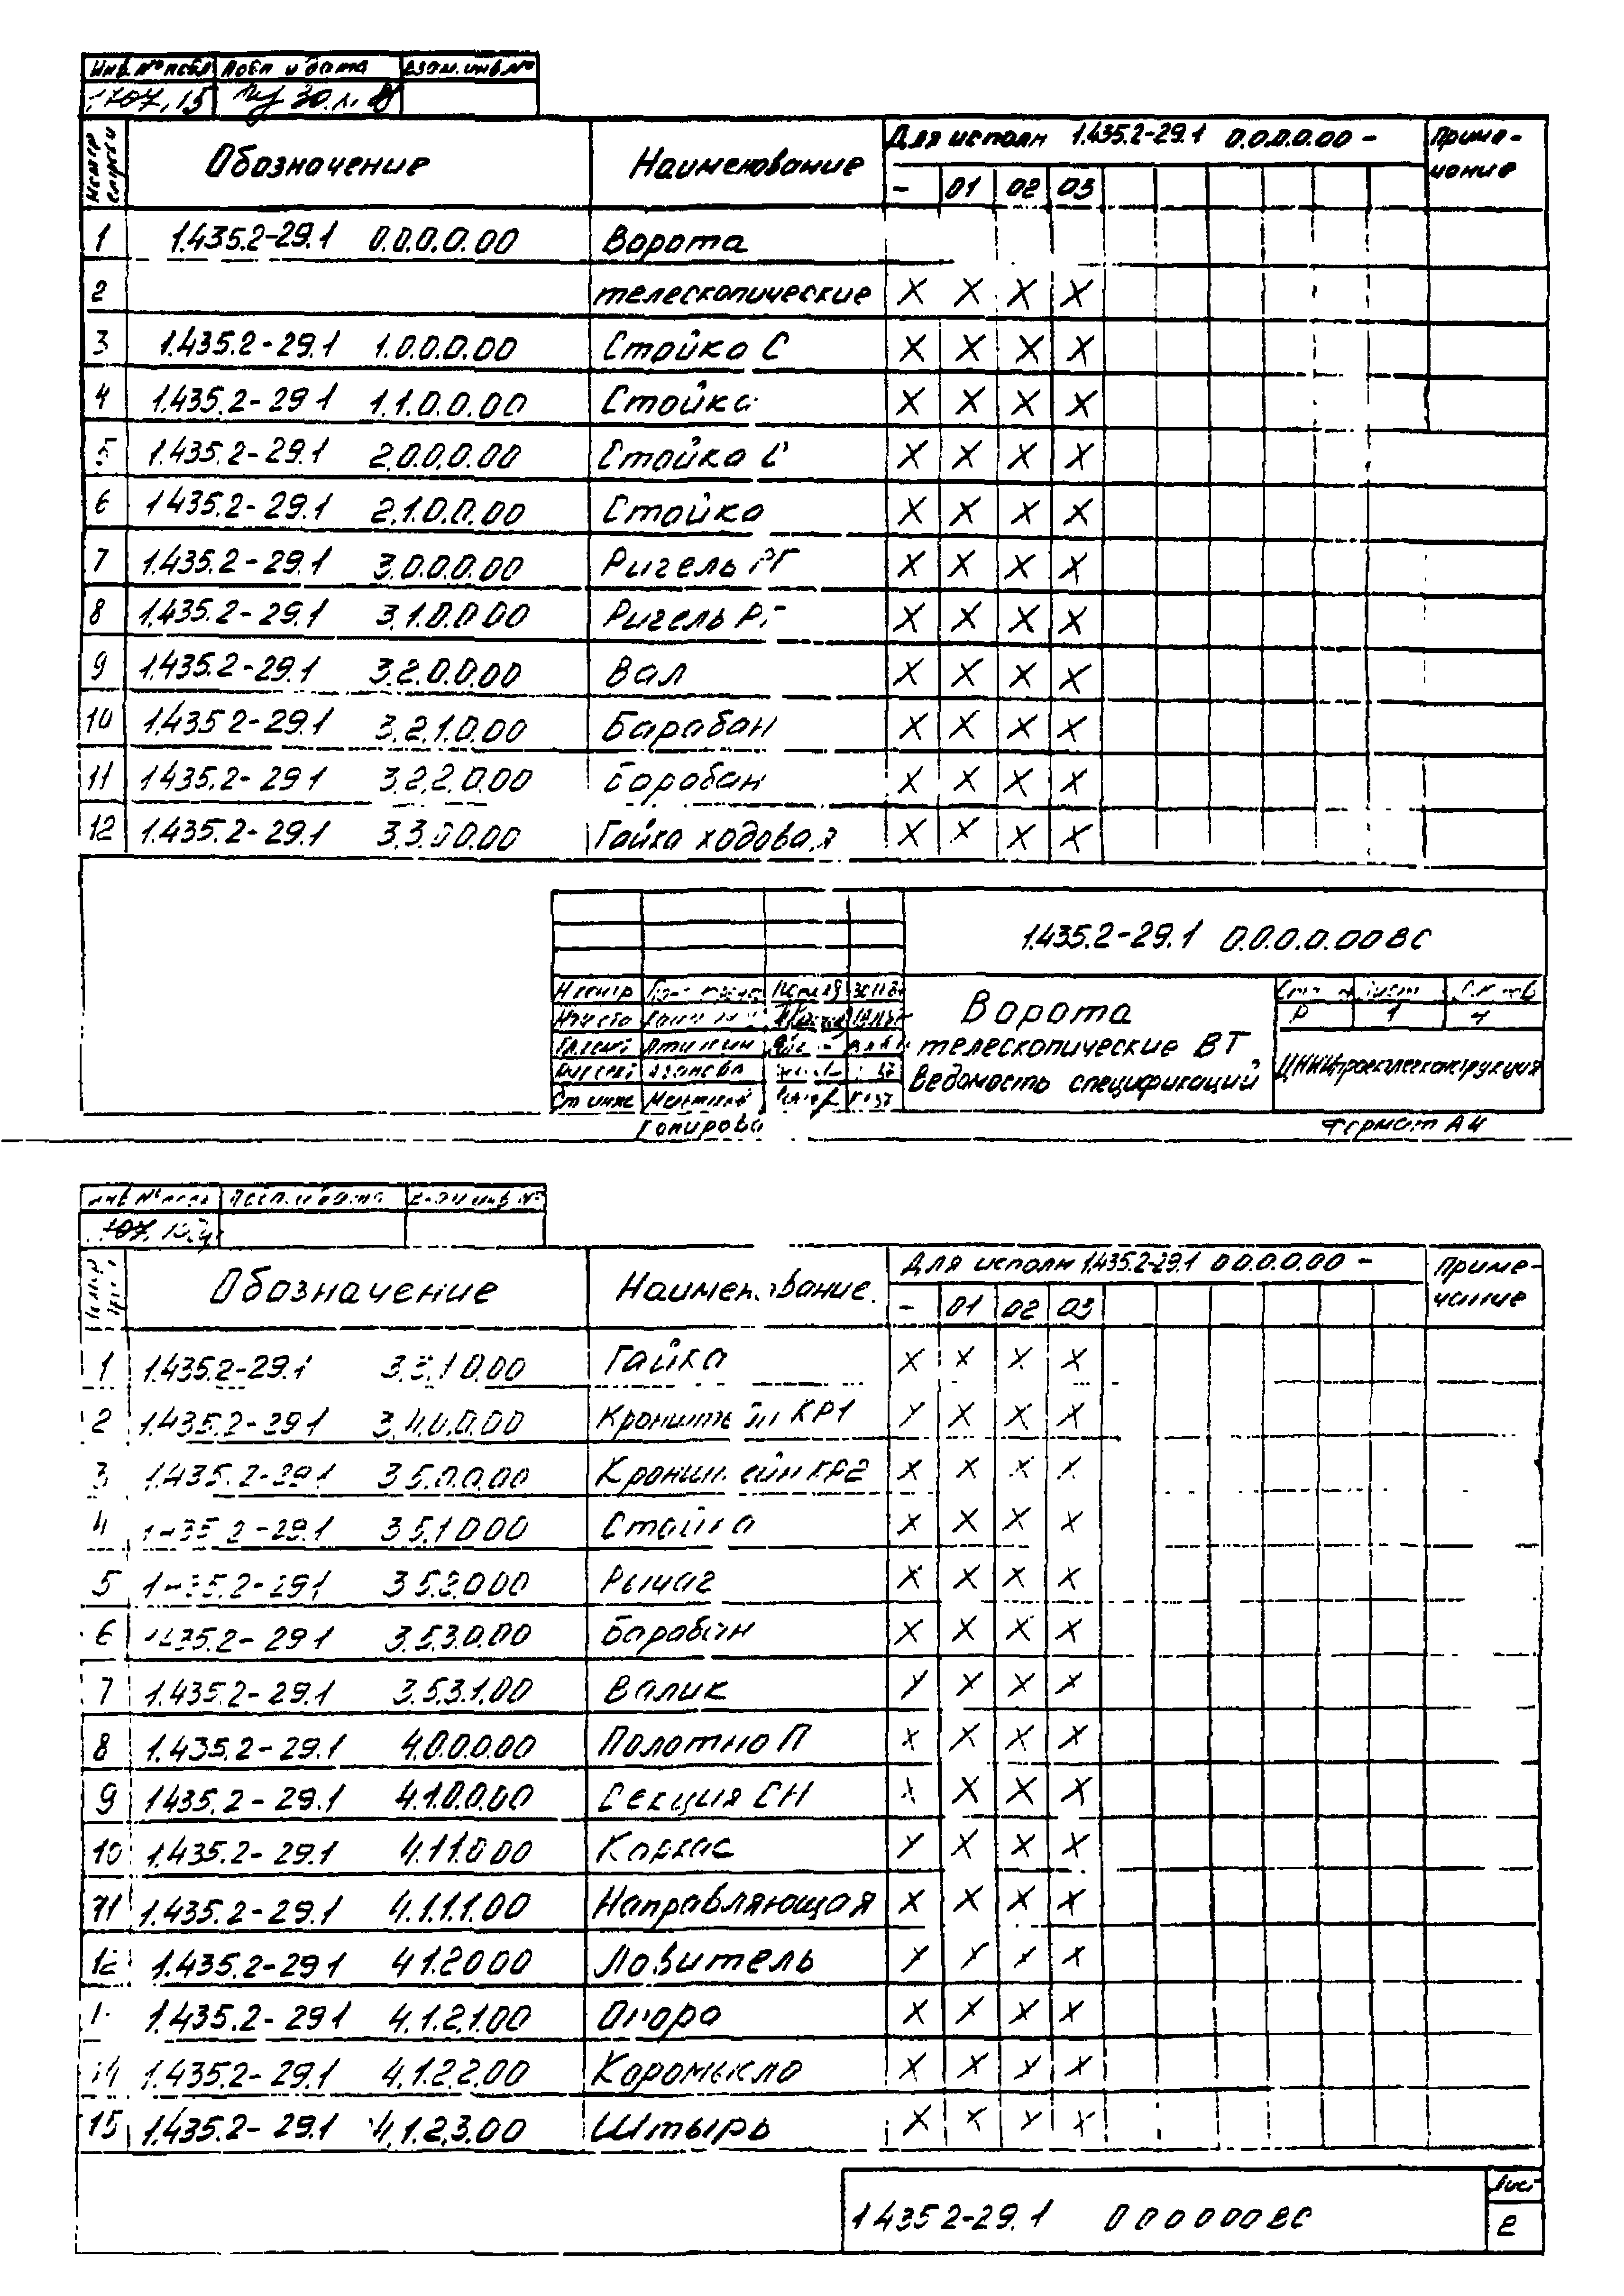 Инв.№подл Подп и дата Взам.инв.№
Номер строки Обозначение Наименование Для исполн 1.435.2-29.1 0.0.0.0.00 - Приме-
- 01 02 03 чание
1 1.435.2-29.1 0.0.0.0.00 Ворота
2 телескопические X X X X
3 1.435.2-29.1 1.0.0.0.00 Стойка С X X X X
4 1.435.2-29 1 1.1.0.0.00 Стойка X X X X
5 1.435.2-29.1 2.0.0.0.00 Стойка С X X X X
6 1435.2-29.1 2.1.0.0.00 Стойка X X X X
7 1.435.2-29.1 3.0.0.0.00 Ригель РГ X X X X
8 1.435.2-29.1 3.1.0.0 00 Ригель РГ X X X X
9 1.435.2-29.1 3.2.0.0.00 Вал X X X X
10 1.435 2-29.1 3.2.1.0.00 Барабан X X X X
11 1.435.2-29 1 3.2.2.0.00 Барабан X X X X
12 1.435.2-29.1 3.3.0 0.00 Гайка ходовая X X X X
1.435.2-29.1 0.0.0.0.00 ВС
Ворота
телескопические ВТ
Ведомость спецификаций
Р 1
ЦНИИпроектлегконструкция
Копирова
Формат А4
Номер Обозначение Наименование Для исполн 1.435.2-29.1 0 0.0.0.00 - Приме-
- 01 02 03 чание
1 1.435.2-29.1 3.3.1 0.00 Гайка X X X X
2 1.435.2-291 3.4.0.0.00 Кронштейн КР1 X X X X
3 1.435.2-291 3 5.0.0.00 Кронштейн КР2 X X X X
4 1.435 2-29.1 3 5.1 0 00 Стойка X X X X
5 1.435.2-291 3 5.2.0 00 Рычаг X X X X
6 1.435.2-29 1 3.5.3.0.00 Барабан X X X X
7 1.435.2-29.1 3.5.3.1.00 Валик X X X X
8 1.435.2-29.1 4.0.0.0.00 Полотно П X X X X
9 1435.2-29.1 4.1.0.0.00 Секция СН X X X X
10 1.435.2-29.1 4.1 1.0 00 Каркас X X X X
11 1.435.2-29.1 4.1.1.1.00 Направляющая X X X X
12 1.435.2-29 1 4 1.2 0 00 Ловитель X X X X
1 1.435.2-29 1 4.1.2.1.00 Опора X X X X
14 1.435.2-29.1 4.1.2.2.00 Коромысло X X X X
15 1.435.2-29.1 4.1.2.3.00 Штырь X X X X
Лист
1 435 2-29.1 0 0 0 0 00 ВС 2